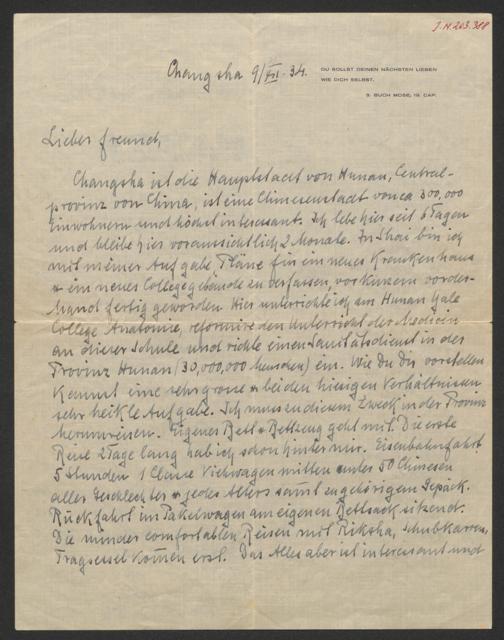 J.N. 203.388
Changsha 9/XII. 34.
DU SOLLST DEINEN NÄCHSTEN LIEBEN
WIE DICH SELBST.
3. BUCH MOSE, 19. CAP.
Lieber Freund,
Changsha ist die Hauptstadt von Hunan, Central-
provinz von China, ist eine Chinesenstadt von ca 300,000
Einwohnern und höchst interessant. Ich lebe hier seit 5 Tagen
und bleibe hier voraussichtlich 2 Monate. In Shai bin ich
mit meiner Aufgabe, Pläne für ein neues Krankenhaus
+ ein neues Collegegebäude zu verfassen, vor kurzem vorder-
hand fertig geworden. Hier unterrichte ich am Hunan Yale
College Anatomie, reformire den Unterricht der Medicin
an dieser Schule und richte einen Sanitätsdienst in der
Provinz Hunan (30,000,000 Menschen) ein. Wie Du Dir vorstellen
kannst eine sehr grosse + bei den hiesigen Verhältnissen
sehr heikle Aufgabe. Ich muss zu diesem Zweck in der Provinz
herumreisen. Eigenes Bett + Bettzeug geht mit. Die erste
Reise 2 Tage lang hab ich schon hinter mir. Eisenbahnfahrt
5 Stunden 1 Classe Viehwagen mitten unter 50 Chinesen
aller Geschlechter + jedes Alters samt zugehörigem Gepäck.
Rückfahrt im Paketwagen am eigenen Bettsack sitzend.
Die minder comfortablen Reisen mit Riksha, Schubkarren,
Tragsessel kommen erst. Das Alles aber ist interessant und